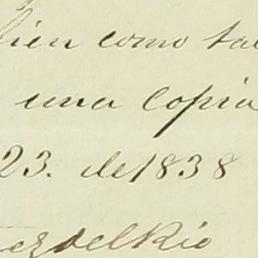 bien como tal
una copia
23. de 1838
ez del Rio